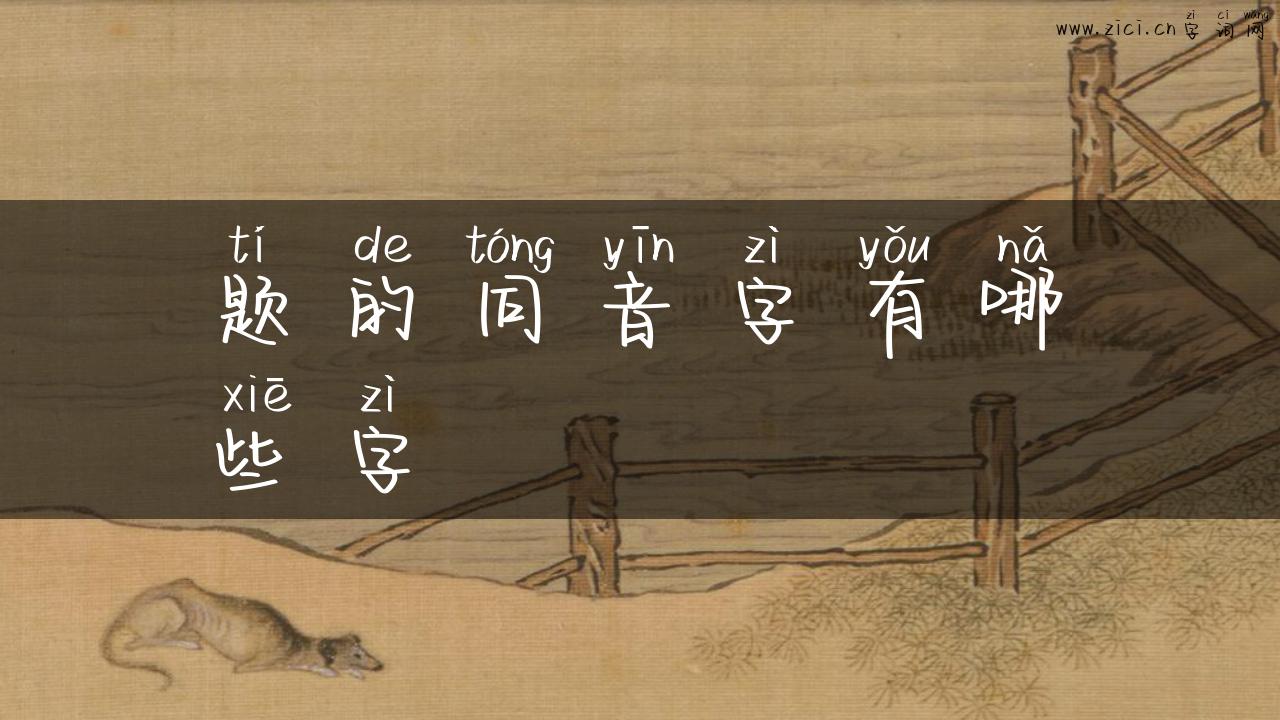 zì cí wǎng
www.zici.cn 字词网
tí de tóng yīn zì yǒu nǎ
题的同音字有哪
xiē zì
些字